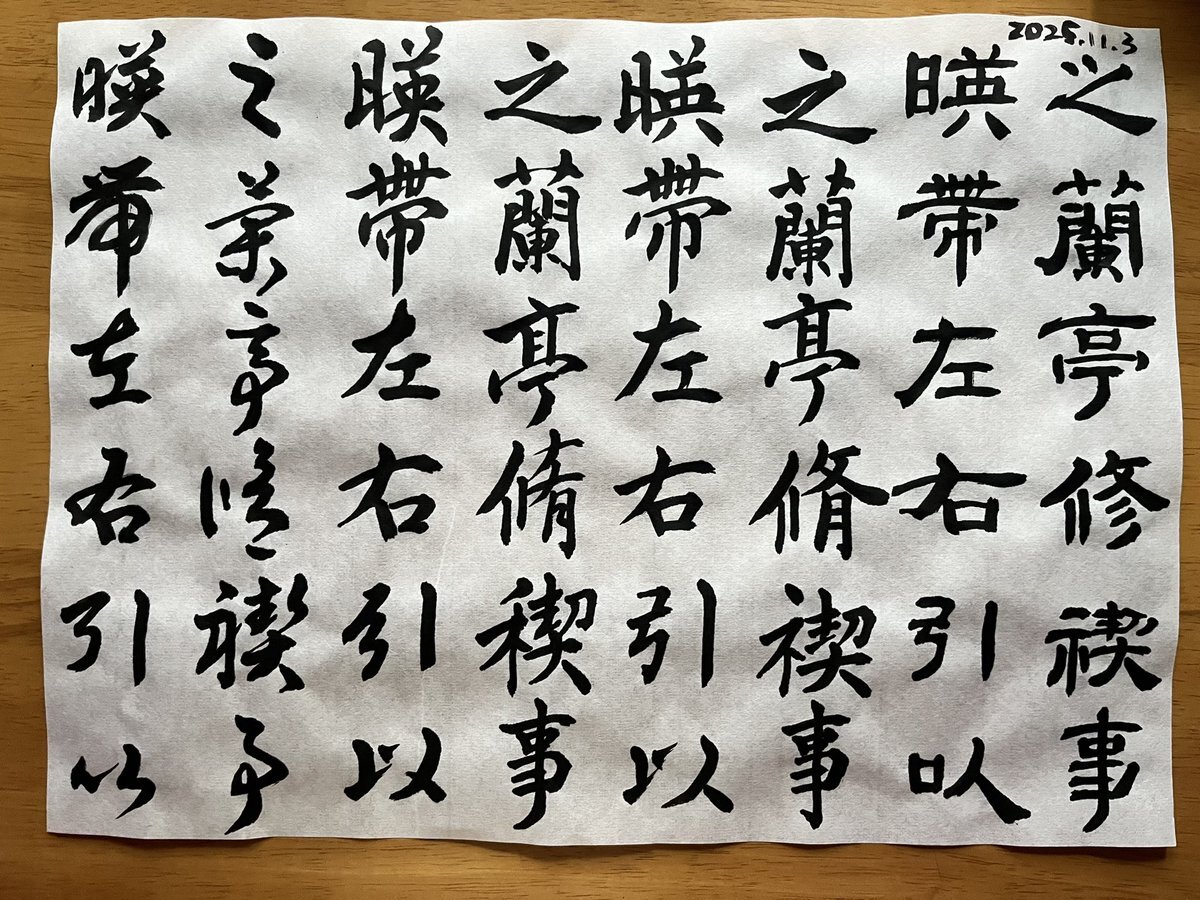 2025.11.3
之蘭亭修禊事
暎帶左右引以
之蘭亭脩禊事
暎帶左右引以
之蘭亭脩稧事
暎帶左右引以
之蘭亭脩禊事
暎帶左右引以